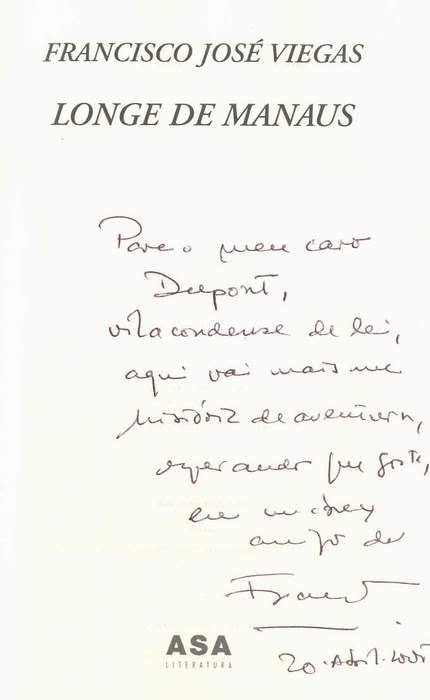 FRANCISCO JOSÉ VIEGAS
LONGE DE MANAUS
Para o meu caro
Dupont,
vilacondense de lei,
aqui vai mais uma
história de aventura,
esperando que goste,
amigo de
ASA
LITERATURA
20. Abril. 2005